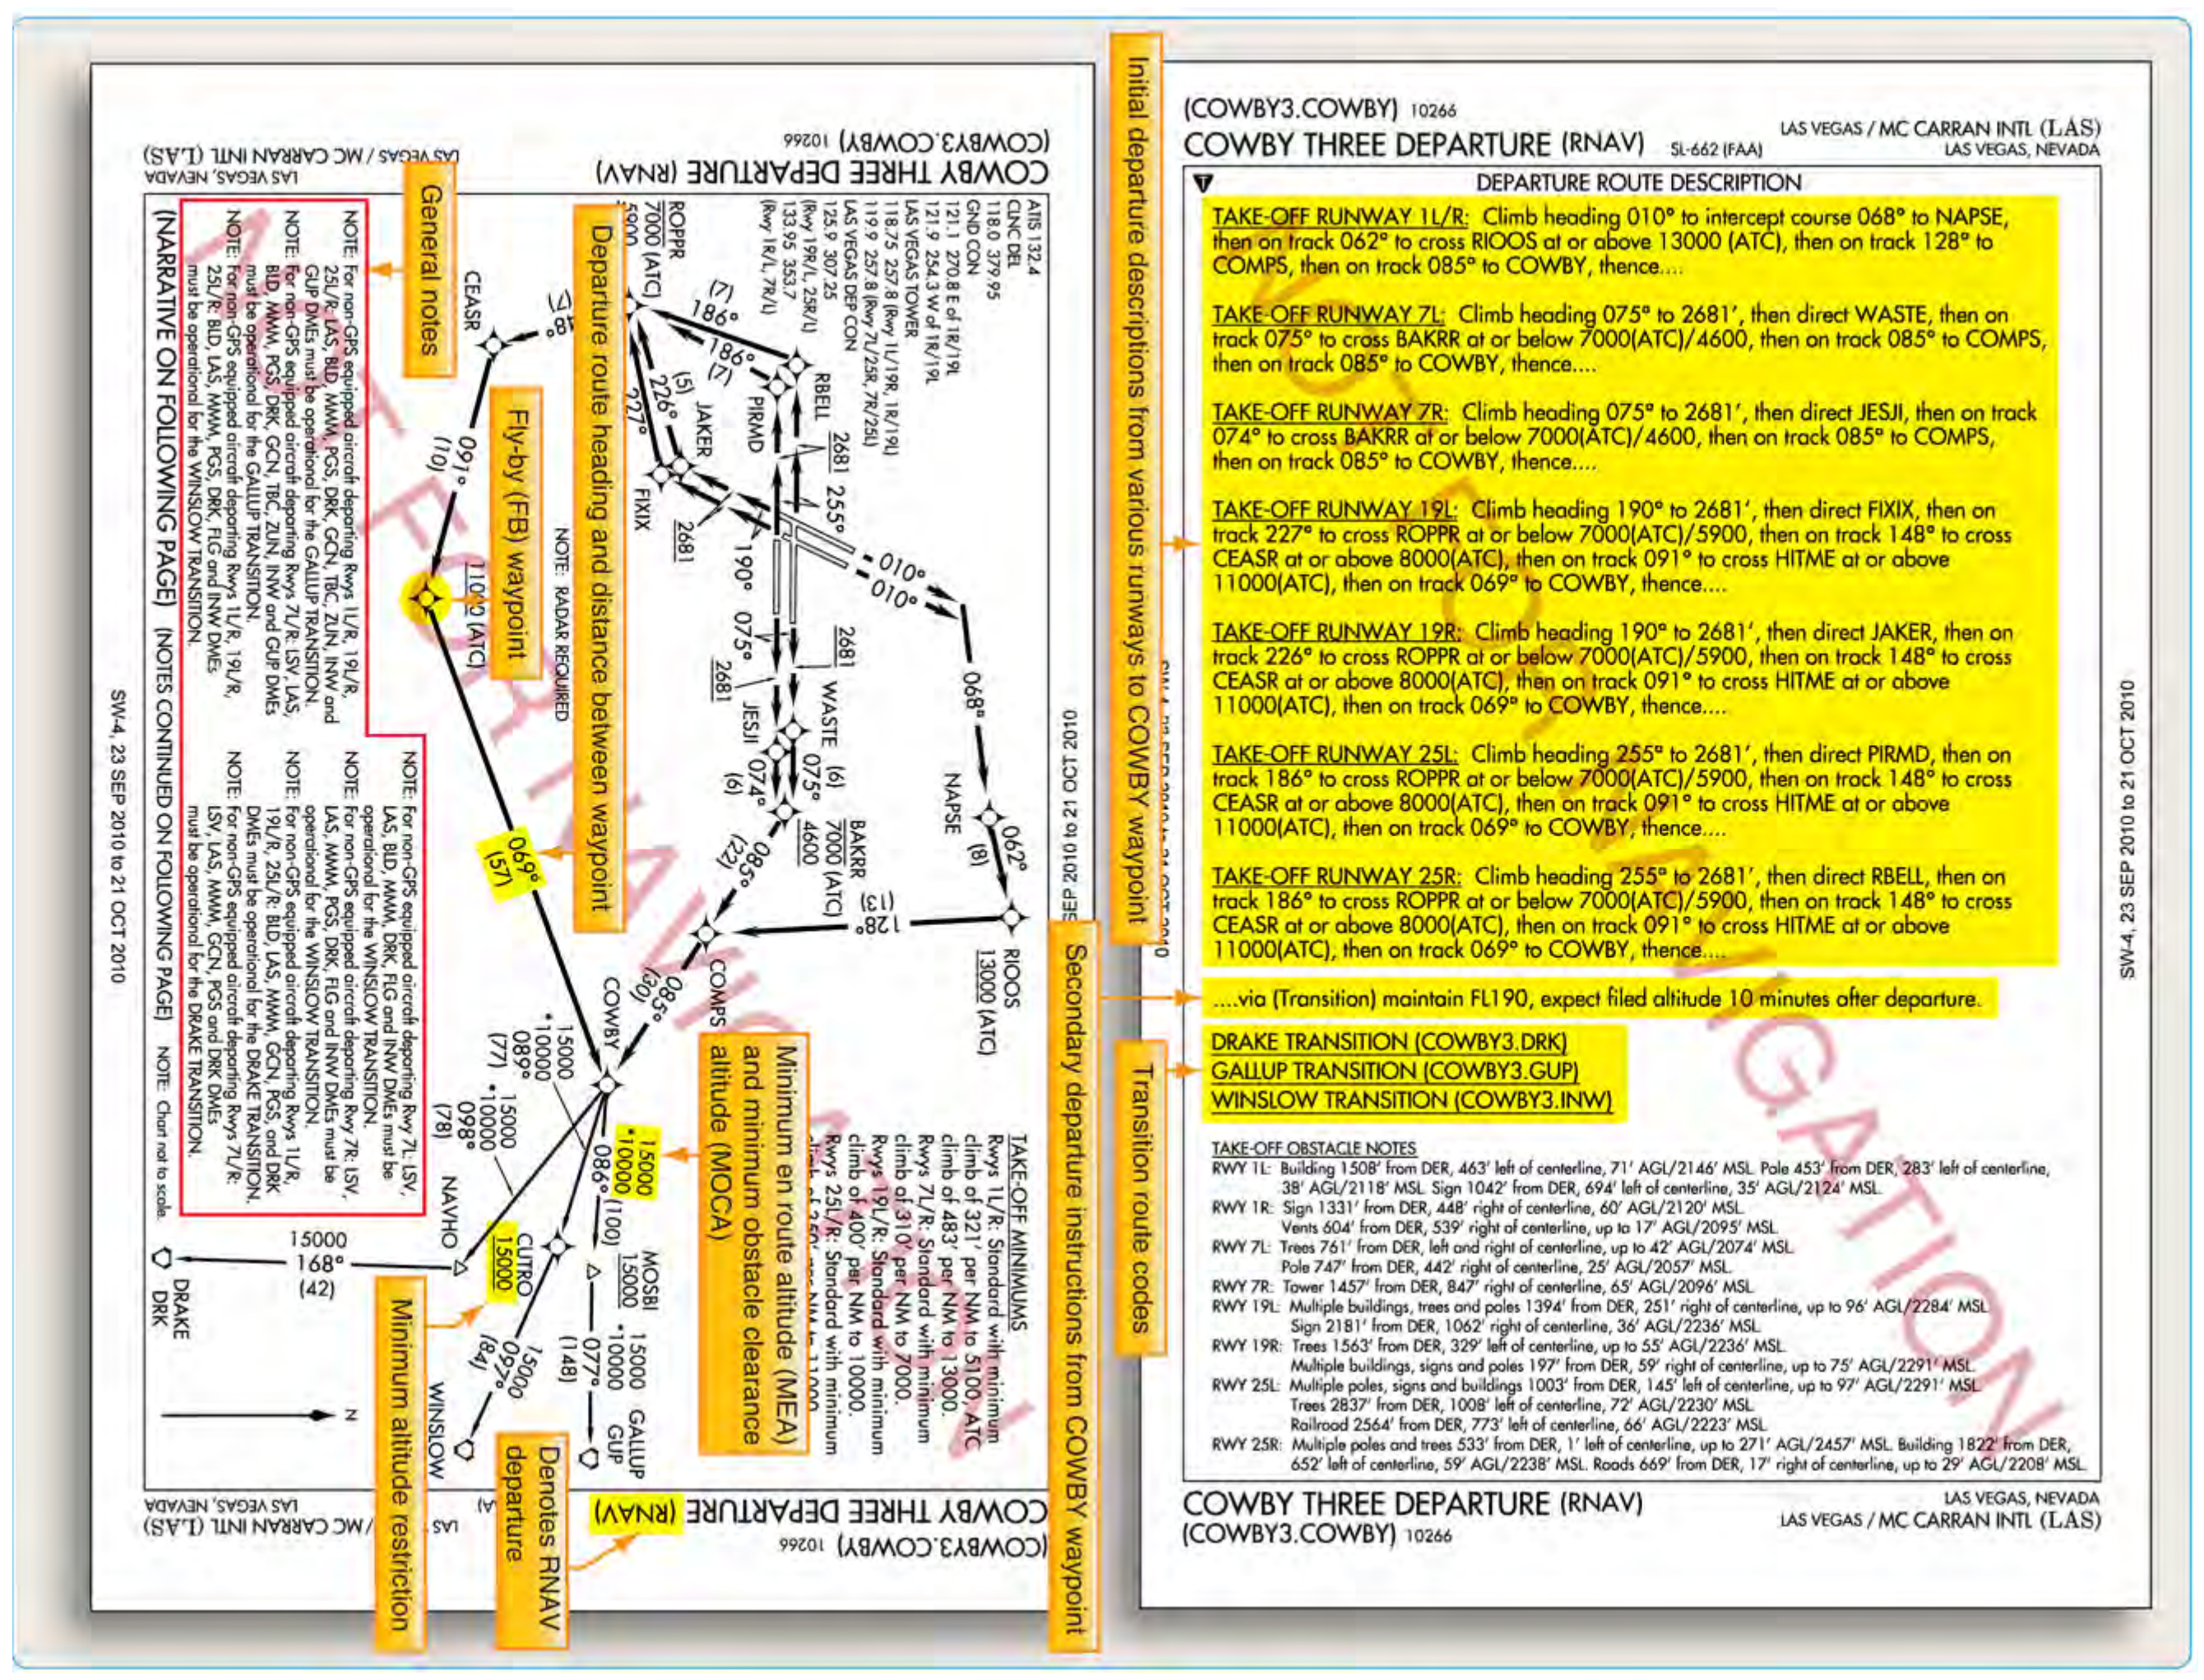 (COWBY3.COWBY) 10266
COWBY THREE DEPARTURE (RNAV)
LAS VEGAS / MC CARRAN INTL (LAS)
LAS VEGAS, NEVADA
ATIS 132.4
CLNC DEL
118.0 379.95
GND CON
121.1 270.8 E of 1R/19L
121.9 254.3 W of 1R/19L
LAS VEGAS TOWER
118.75 257.8 (Rwy 1L/19R, 1R/19L)
119.9 257.8 (Rwy 7L/25R, 7R/25L)
LAS VEGAS DEP CON
125.9 307.25
(Rwy 19R/L, 25R/L)
133.95 353.7
(Rwy 1R/L, 7R/L)
ROPPR
7000 (ATC)
5900
(7)
186°
186°
(7)
RBELL
PIRMD
2681
255°
(5)
226°
227°
JAKER
FIXIX
2681
190°
010°
010°
068°
NAPSE
062°
(8)
RIOOS
13000 (ATC)
128°
(13)
2681
075°
2681
WASTE
(6)
075°
JESJI
074°
(6)
BAKRR
7000 (ATC)
4600
085°
(22)
COMPS
085°
(30)
COWBY
CEASR
091°
(10)
11000 (ATC)
NOTE: RADAR REQUIRED
069°
(57)
15000
*10000
089°
(77)
15000
*10000
098°
(78)
15000
*10000
086° (100)
MOSBI
15000
15000
*10000
077°
(148)
GALLUP
GUP
CUTRO
15000
15000
097°
(84)
WINSLOW
NAVHO
15000
168°
(42)
DRAKE
DRK
N
TAKE-OFF MINIMUMS
Rwys 1L/R: Standard with minimum
climb of 321' per NM to 5100, ATC
climb of 483' per NM to 13000.
Rwys 7L/R: Standard with minimum
climb of 310' per NM to 7000.
Rwys 19L/R: Standard with minimum
climb of 400' per NM to 10000.
Rwys 25L/R: Standard with minimum
NOTE: For non-GPS equipped aircraft departing Rwys 1L/R, 19L/R,
25L/R: LAS, BLD, MMM, PGS, DRK, GCN, TBC, ZUN, INW and
GUP DMEs must be operational for the GALLUP TRANSITION.
NOTE: For non-GPS equipped aircraft departing Rwys 7L/R: LSV, LAS,
BLD, MMM, PGS, DRK, GCN, TBC, ZUN, INW and GUP DMEs
must be operational for the GALLUP TRANSITION.
NOTE: For non-GPS equipped aircraft departing Rwys 1L/R, 19L/R,
25L/R: BLD, LAS, MMM, PGS, DRK, FLG and INW DMEs
must be operational for the WINSLOW TRANSITION.
NOTE: For non-GPS equipped aircraft departing Rwy 7L: LSV,
LAS, BLD, MMM, DRK, FLG and INW DMEs must be
operational for the WINSLOW TRANSITION.
NOTE: For non-GPS equipped aircraft departing Rwy 7R: LSV,
LAS, MMM, PGS, DRK, FLG and INW DMEs must be
operational for the WINSLOW TRANSITION.
NOTE: For non-GPS equipped aircraft departing Rwys 1L/R,
19L/R, 25L/R: BLD, LAS, MMM, GCN, PGS, and DRK
DMEs must be operational for the DRAKE TRANSITION.
NOTE: For non-GPS equipped aircraft departing Rwys 7L/R:
LSV, LAS, MMM, GCN, PGS and DRK DMEs
must be operational for the DRAKE TRANSITION.
(NARRATIVE ON FOLLOWING PAGE) (NOTES CONTINUED ON FOLLOWING PAGE) NOTE: Chart not to scale.
SW-4, 23 SEP 2010 to 21 OCT 2010
SEP 2010 to 21 OCT 2010
COWBY THREE DEPARTURE (RNAV)
(COWBY3.COWBY) 10266
LAS VEGAS, NEVADA
MC CARRAN INTL (LAS)
NOT FOR NAVIGATION
General notes
Fly-by (FB) waypoint
Departure route heading and distance between waypoint
Minimum en route altitude (MEA)
and minimum obstacle clearance
altitude (MOCA)
Minimum altitude restriction
Denotes RNAV
departure
Initial departure descriptions from various runways to COWBY waypoint
Secondary departure instructions from COWBY waypoint
Transition route codes
(COWBY3.COWBY) 10266
COWBY THREE DEPARTURE (RNAV) SL-662 (FAA)
LAS VEGAS / MC CARRAN INTL (LAS)
LAS VEGAS, NEVADA
T
DEPARTURE ROUTE DESCRIPTION
TAKE-OFF RUNWAY 1L/R: Climb heading 010° to intercept course 068° to NAPSE,
then on track 062° to cross RIOOS at or above 13000 (ATC), then on track 128° to
COMPS, then on track 085° to COWBY, thence....
TAKE-OFF RUNWAY 7L: Climb heading 075° to 2681', then direct WASTE, then on
track 075° to cross BAKRR at or below 7000(ATC)/4600, then on track 085° to COMPS,
then on track 085° to COWBY, thence....
TAKE-OFF RUNWAY 7R: Climb heading 075° to 2681', then direct JESJI, then on track
074° to cross BAKRR at or below 7000(ATC)/4600, then on track 085° to COMPS,
then on track 085° to COWBY, thence....
TAKE-OFF RUNWAY 19L: Climb heading 190° to 2681', then direct FIXIX, then on
track 227° to cross ROPPR at or below 7000(ATC)/5900, then on track 148° to cross
CEASR at or above 8000(ATC), then on track 091° to cross HITME at or above
11000(ATC), then on track 069° to COWBY, thence....
TAKE-OFF RUNWAY 19R: Climb heading 190° to 2681', then direct JAKER, then on
track 226° to cross ROPPR at or below 7000(ATC)/5900, then on track 148° to cross
CEASR at or above 8000(ATC), then on track 091° to cross HITME at or above
11000(ATC), then on track 069° to COWBY, thence....
TAKE-OFF RUNWAY 25L: Climb heading 255° to 2681', then direct PIRMD, then on
track 186° to cross ROPPR at or below 7000(ATC)/5900, then on track 148° to cross
CEASR at or above 8000(ATC), then on track 091° to cross HITME at or above
11000(ATC), then on track 069° to COWBY, thence....
TAKE-OFF RUNWAY 25R: Climb heading 255° to 2681', then direct RBELL, then on
track 186° to cross ROPPR at or below 7000(ATC)/5900, then on track 148° to cross
CEASR at or above 8000(ATC), then on track 091° to cross HITME at or above
11000(ATC), then on track 069° to COWBY, thence....
....via (Transition) maintain FL190, expect filed altitude 10 minutes after departure.
DRAKE TRANSITION (COWBY3.DRK)
GALLUP TRANSITION (COWBY3.GUP)
WINSLOW TRANSITION (COWBY3.INW)
TAKE-OFF OBSTACLE NOTES
RWY 1L: Building 1508' from DER, 463' left of centerline, 71' AGL/2146' MSL. Pole 453' from DER, 283' left of centerline,
38' AGL/2118' MSL. Sign 1042' from DER, 694' left of centerline, 35' AGL/2124' MSL.
RWY 1R: Sign 1331' from DER, 448' right of centerline, 60' AGL/2120' MSL.
Vents 604' from DER, 539' right of centerline, up to 17' AGL/2095' MSL.
RWY 7L: Trees 761' from DER, left and right of centerline, up to 42' AGL/2074' MSL.
Pole 747' from DER, 442' right of centerline, 25' AGL/2057' MSL.
RWY 7R: Tower 1457' from DER, 847' right of centerline, 65' AGL/2096' MSL.
RWY 19L: Multiple buildings, trees and poles 1394' from DER, 251' right of centerline, up to 96' AGL/2284' MSL.
Sign 2181' from DER, 1062' right of centerline, 36' AGL/2236' MSL.
RWY 19R: Trees 1563' from DER, 329' left of centerline, up to 55' AGL/2236' MSL.
Multiple buildings, signs and poles 197' from DER, 59' right of centerline, up to 75' AGL/2291' MSL.
RWY 25L: Multiple poles, signs and buildings 1003' from DER, 145' left of centerline, up to 97' AGL/2291' MSL.
Trees 2837' from DER, 1008' left of centerline, 72' AGL/2230' MSL.
Railroad 2564' from DER, 773' left of centerline, 66' AGL/2223' MSL.
RWY 25R: Multiple poles and trees 533' from DER, 1' left of centerline, up to 271' AGL/2457' MSL. Building 1822' from DER,
652' left of centerline, 59' AGL/2238' MSL. Roads 669' from DER, 17' right of centerline, up to 29' AGL/2208' MSL.
COWBY THREE DEPARTURE (RNAV)
(COWBY3.COWBY) 10266
LAS VEGAS, NEVADA
LAS VEGAS / MC CARRAN INTL (LAS)
SW-4, 23 SEP 2010 to 21 OCT 2010
NOT FOR NAVIGATION